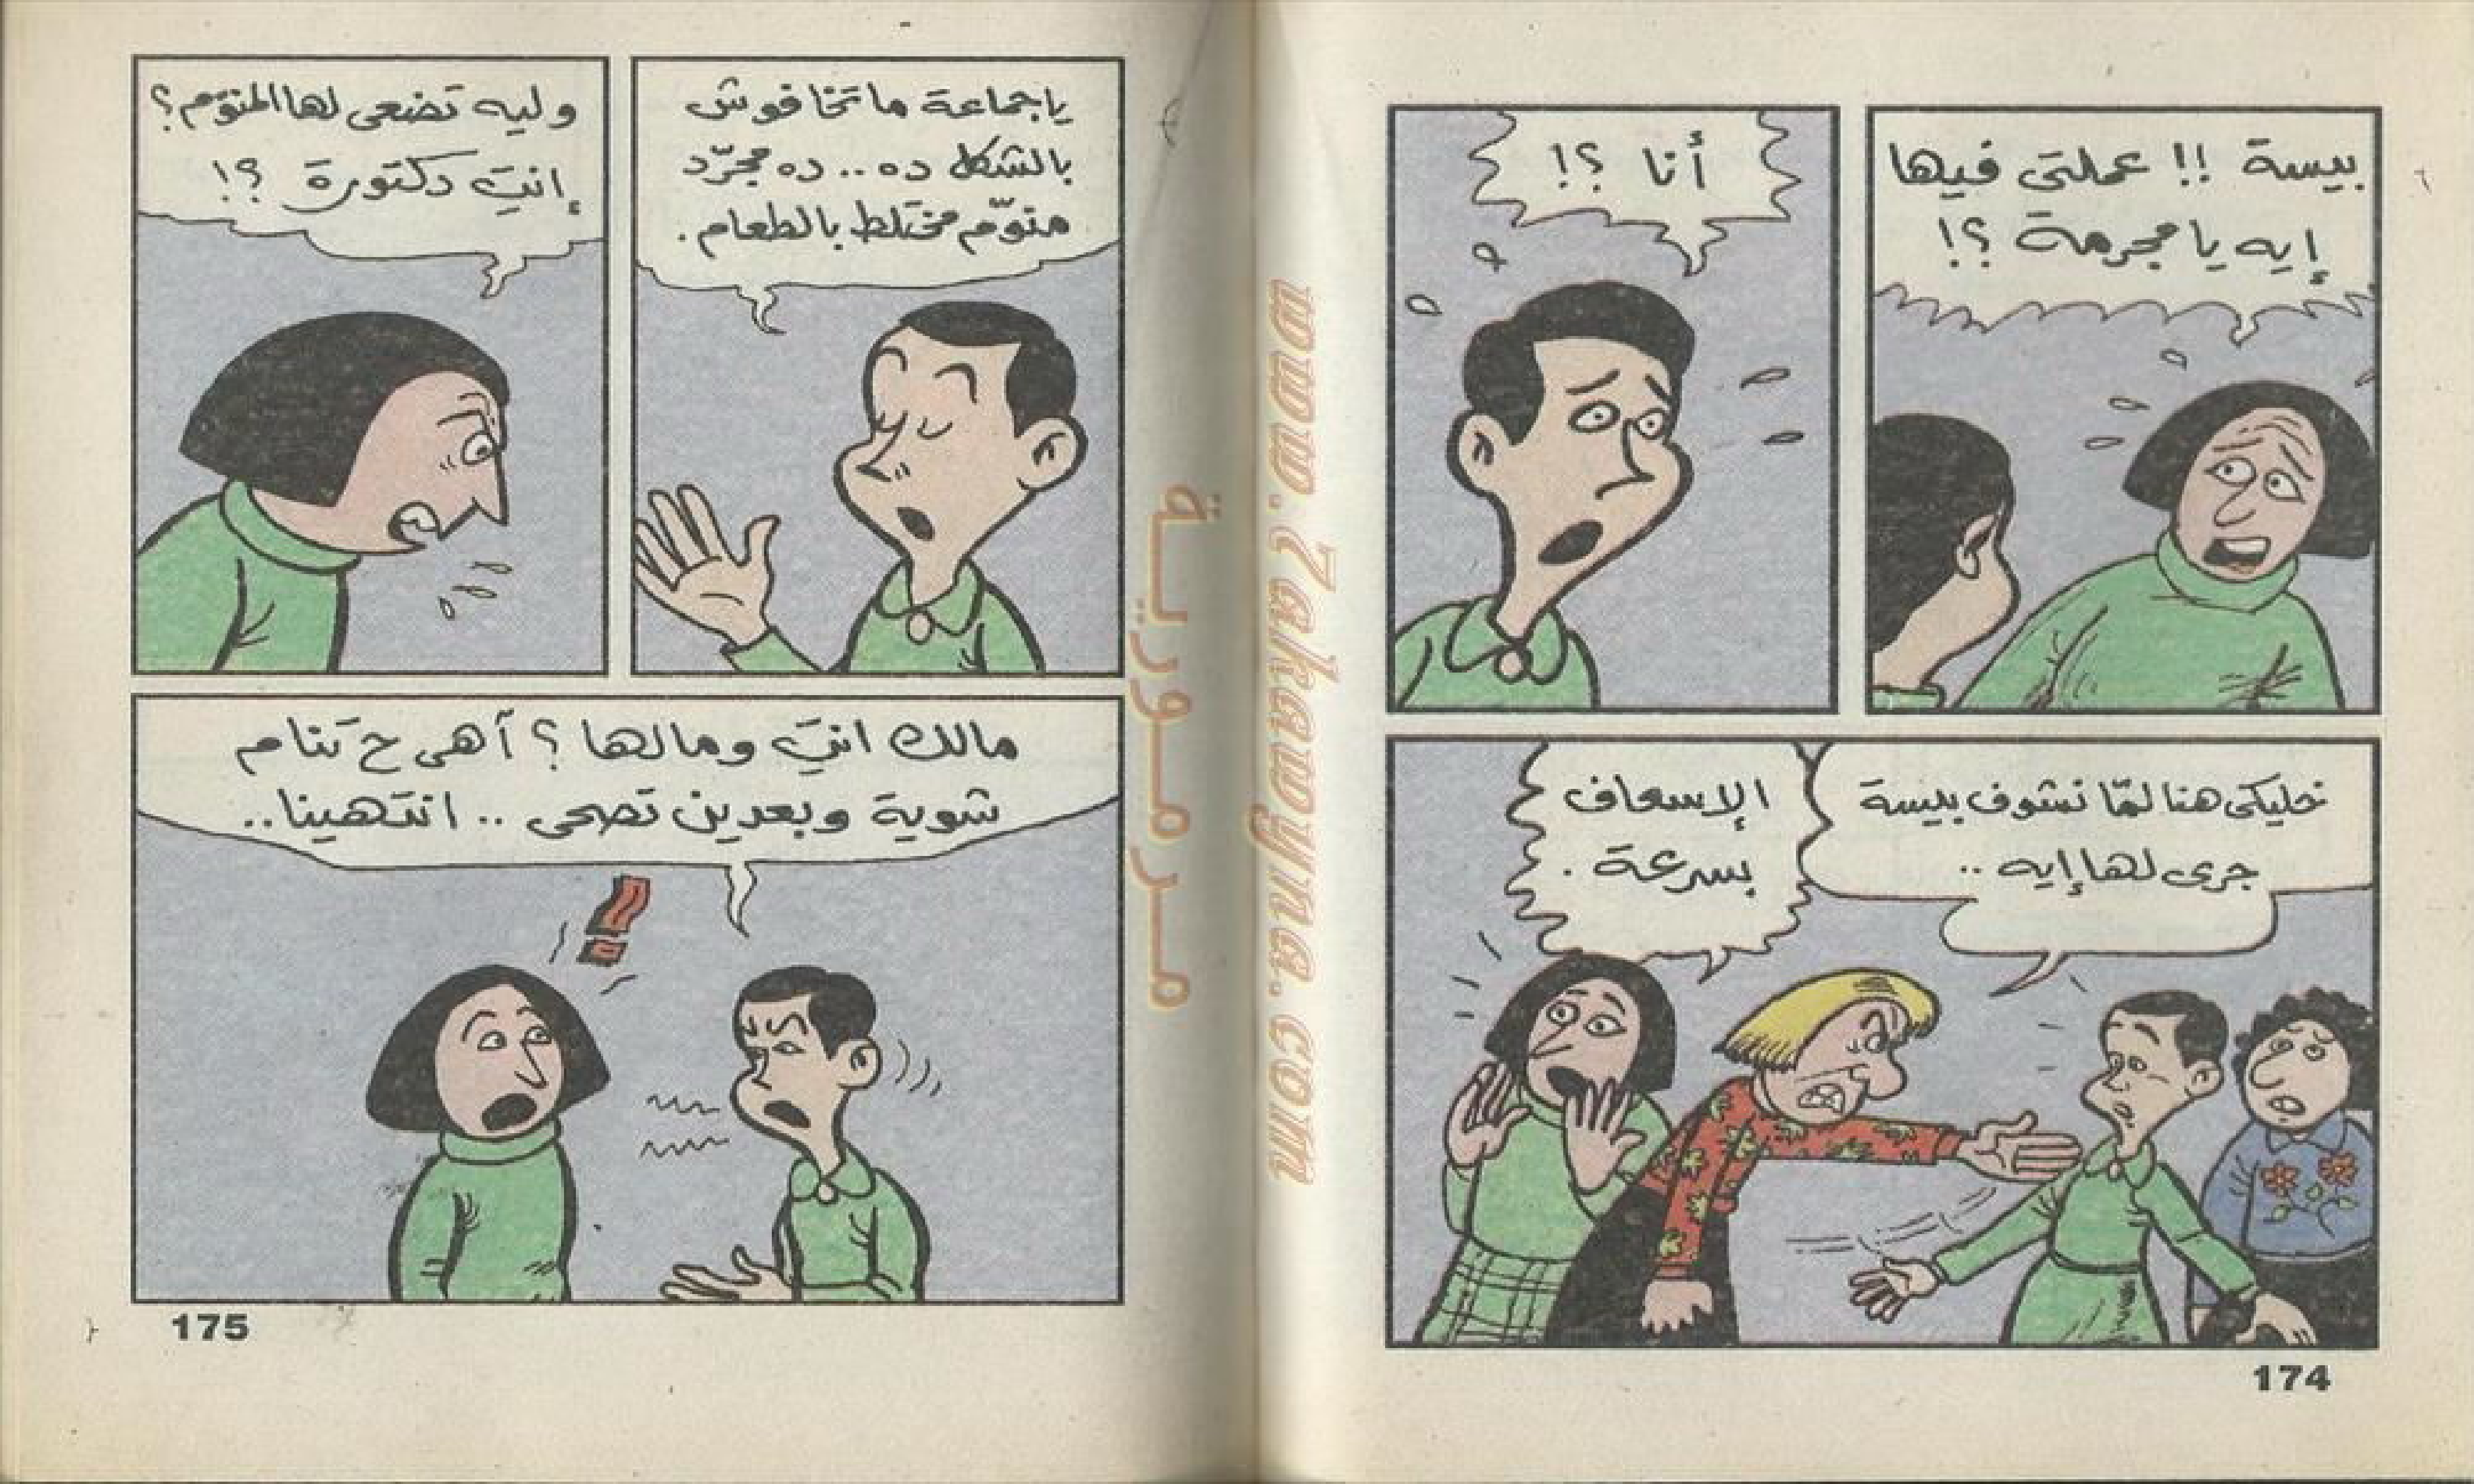 بيسة !! عملتى فيها
إيه يا مجرمة ؟!
أنا ؟!
خليكى هنا لمّا نشوف بيسة
جرى لها إيه ..
الإسعاف
بسرعة .
174
يا جماعة ما تخافوش
بالشكل ده .. ده مجرّد
منوّم مختلط بالطعام .
وليه تضعى لها المنوّم ؟
إنتِ دكتورة ؟!
مالك انتِ ومالها ؟ آهى ح تنام
شوية وبعدين تصحى .. انتهينا ..
175
www.Zakawyna.com
مرمورية